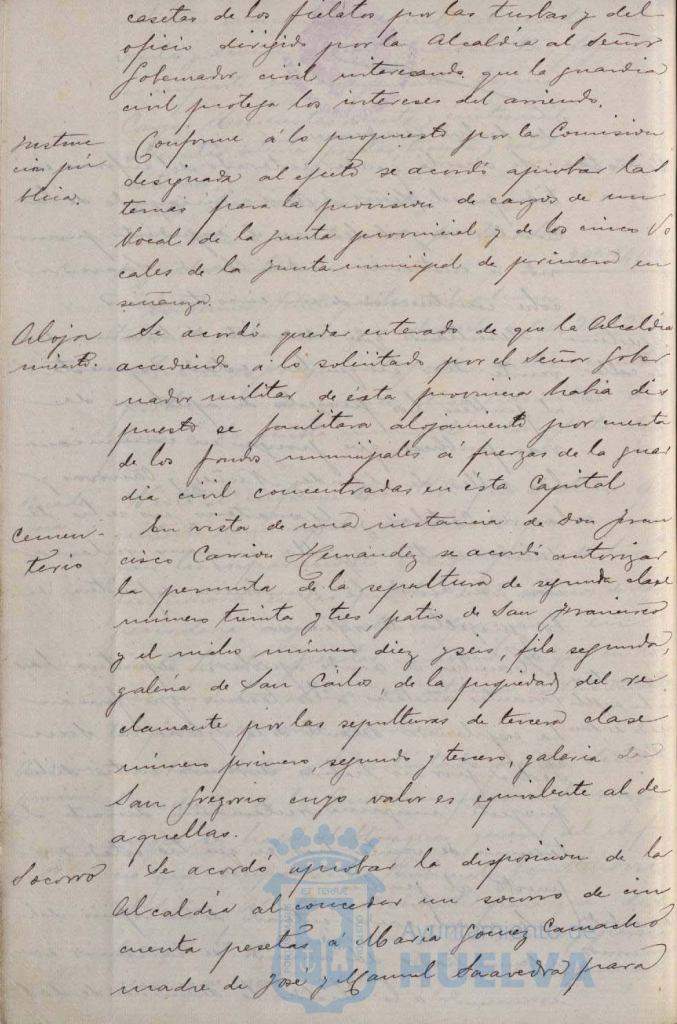 casetas de los fielatos por las turbas y del
oficio dirigido por la Alcaldía al Señor
Gobernador civil interesando que la guardia
civil proteja los intereses del arriendo.
Instruc
ción pú
blica.
Conforme á lo propuesto por la Comision
designada al efecto se acordó aprobar las
ternas para la provision de cargos de un
Vocal de la Junta provincial y de los cinco Vo
cales de la Junta municipal de primera en
señanza.
Aloja
miento.
Se acordó quedar enterado de que la Alcaldía
accediendo á lo solicitado por el Señor Gober
nador militar de ésta provincia habia dis
puesto se facilitara alojamiento por cuenta
de los fondos municipales á fuerzas de la guar
dia civil concentradas en ésta Capital
Cemen-
terio
En vista de una instancia de Don Fran
cisco Carrion Hernández se acordó autorizar
la permuta de la sepultura de segunda clase
número treinta y tres, patio de San Francisco
y el nicho número diez y seis, fila segunda,
galería de San Cárlos, de la propiedad del re
clamante por las sepulturas de tercera clase
número primero, segundo y tercero, galeria de
San Gregorio cuyo valor es equivalente al de
aquellas.
Socorro
Se acordó aprobar la disposicion de la
Alcaldía al conceder un socorro de cin
cuenta pesetas á María Gomez Camacho
madre de José y Manuel Saavedra para
Ayuntamiento de
HUELVA